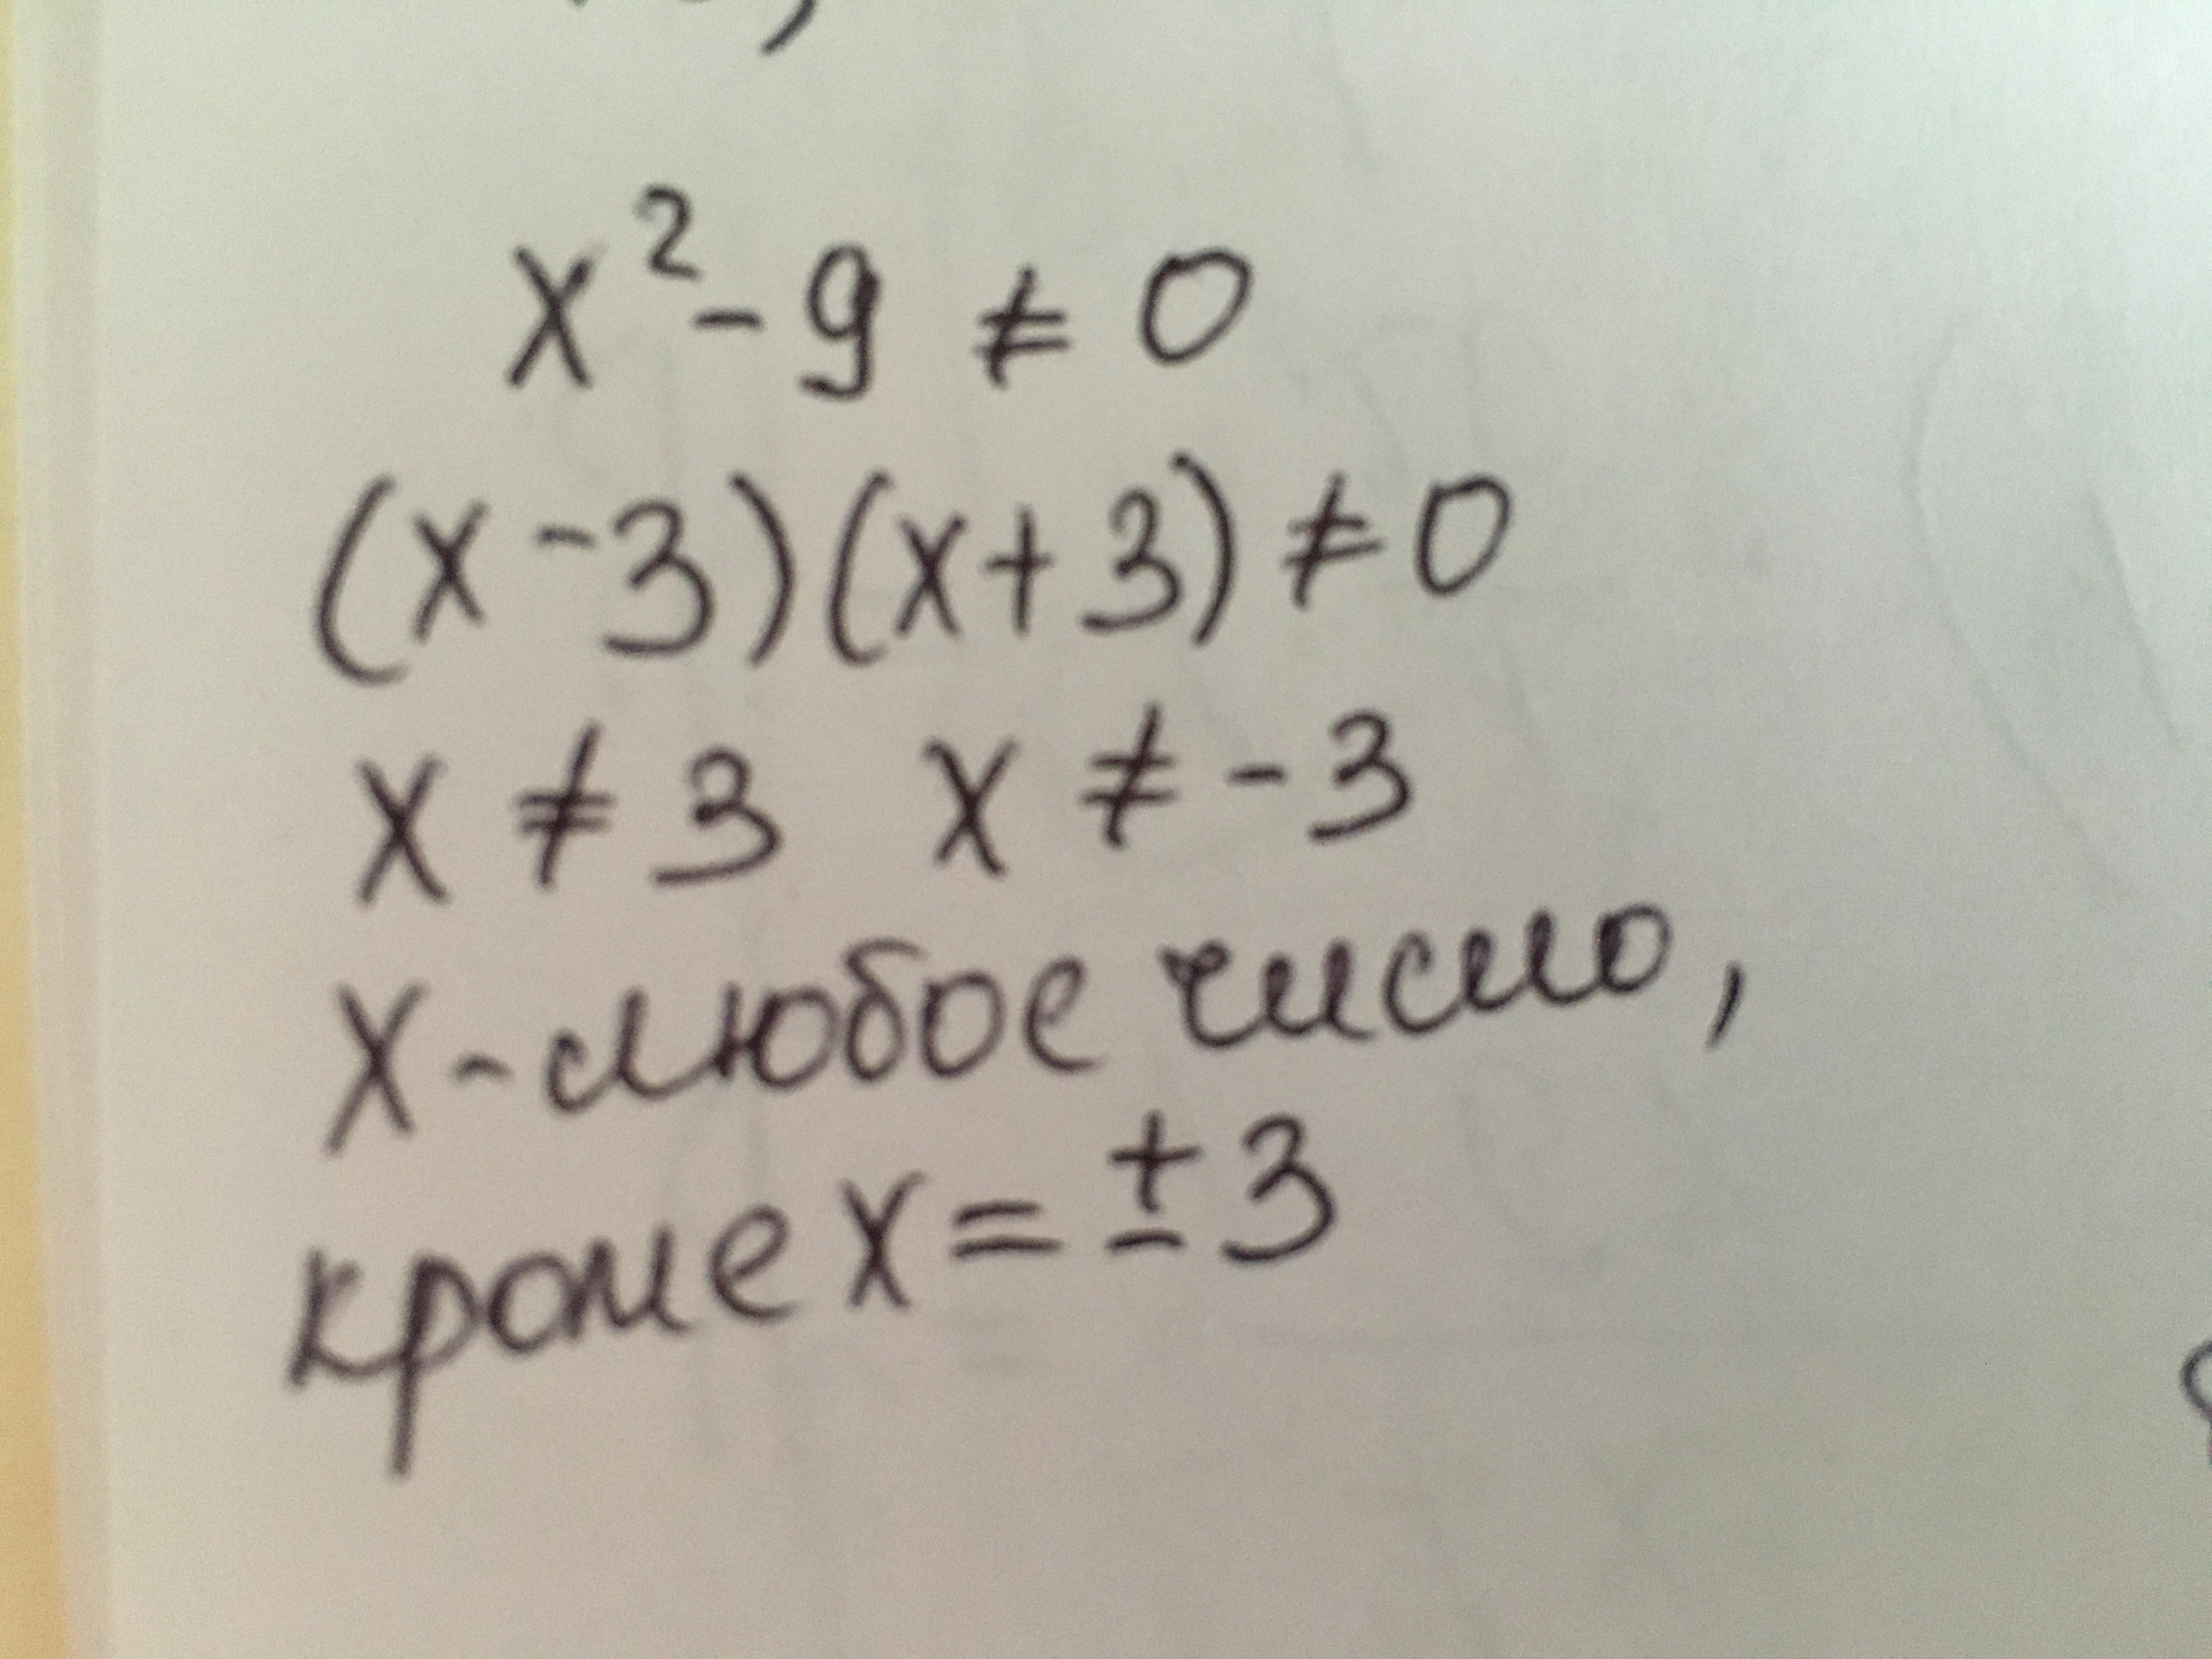 x² - 9 ≠ 0
(x - 3)(x + 3) ≠ 0
x ≠ 3 x ≠ -3
x - любое число,
кроме x = ± 3